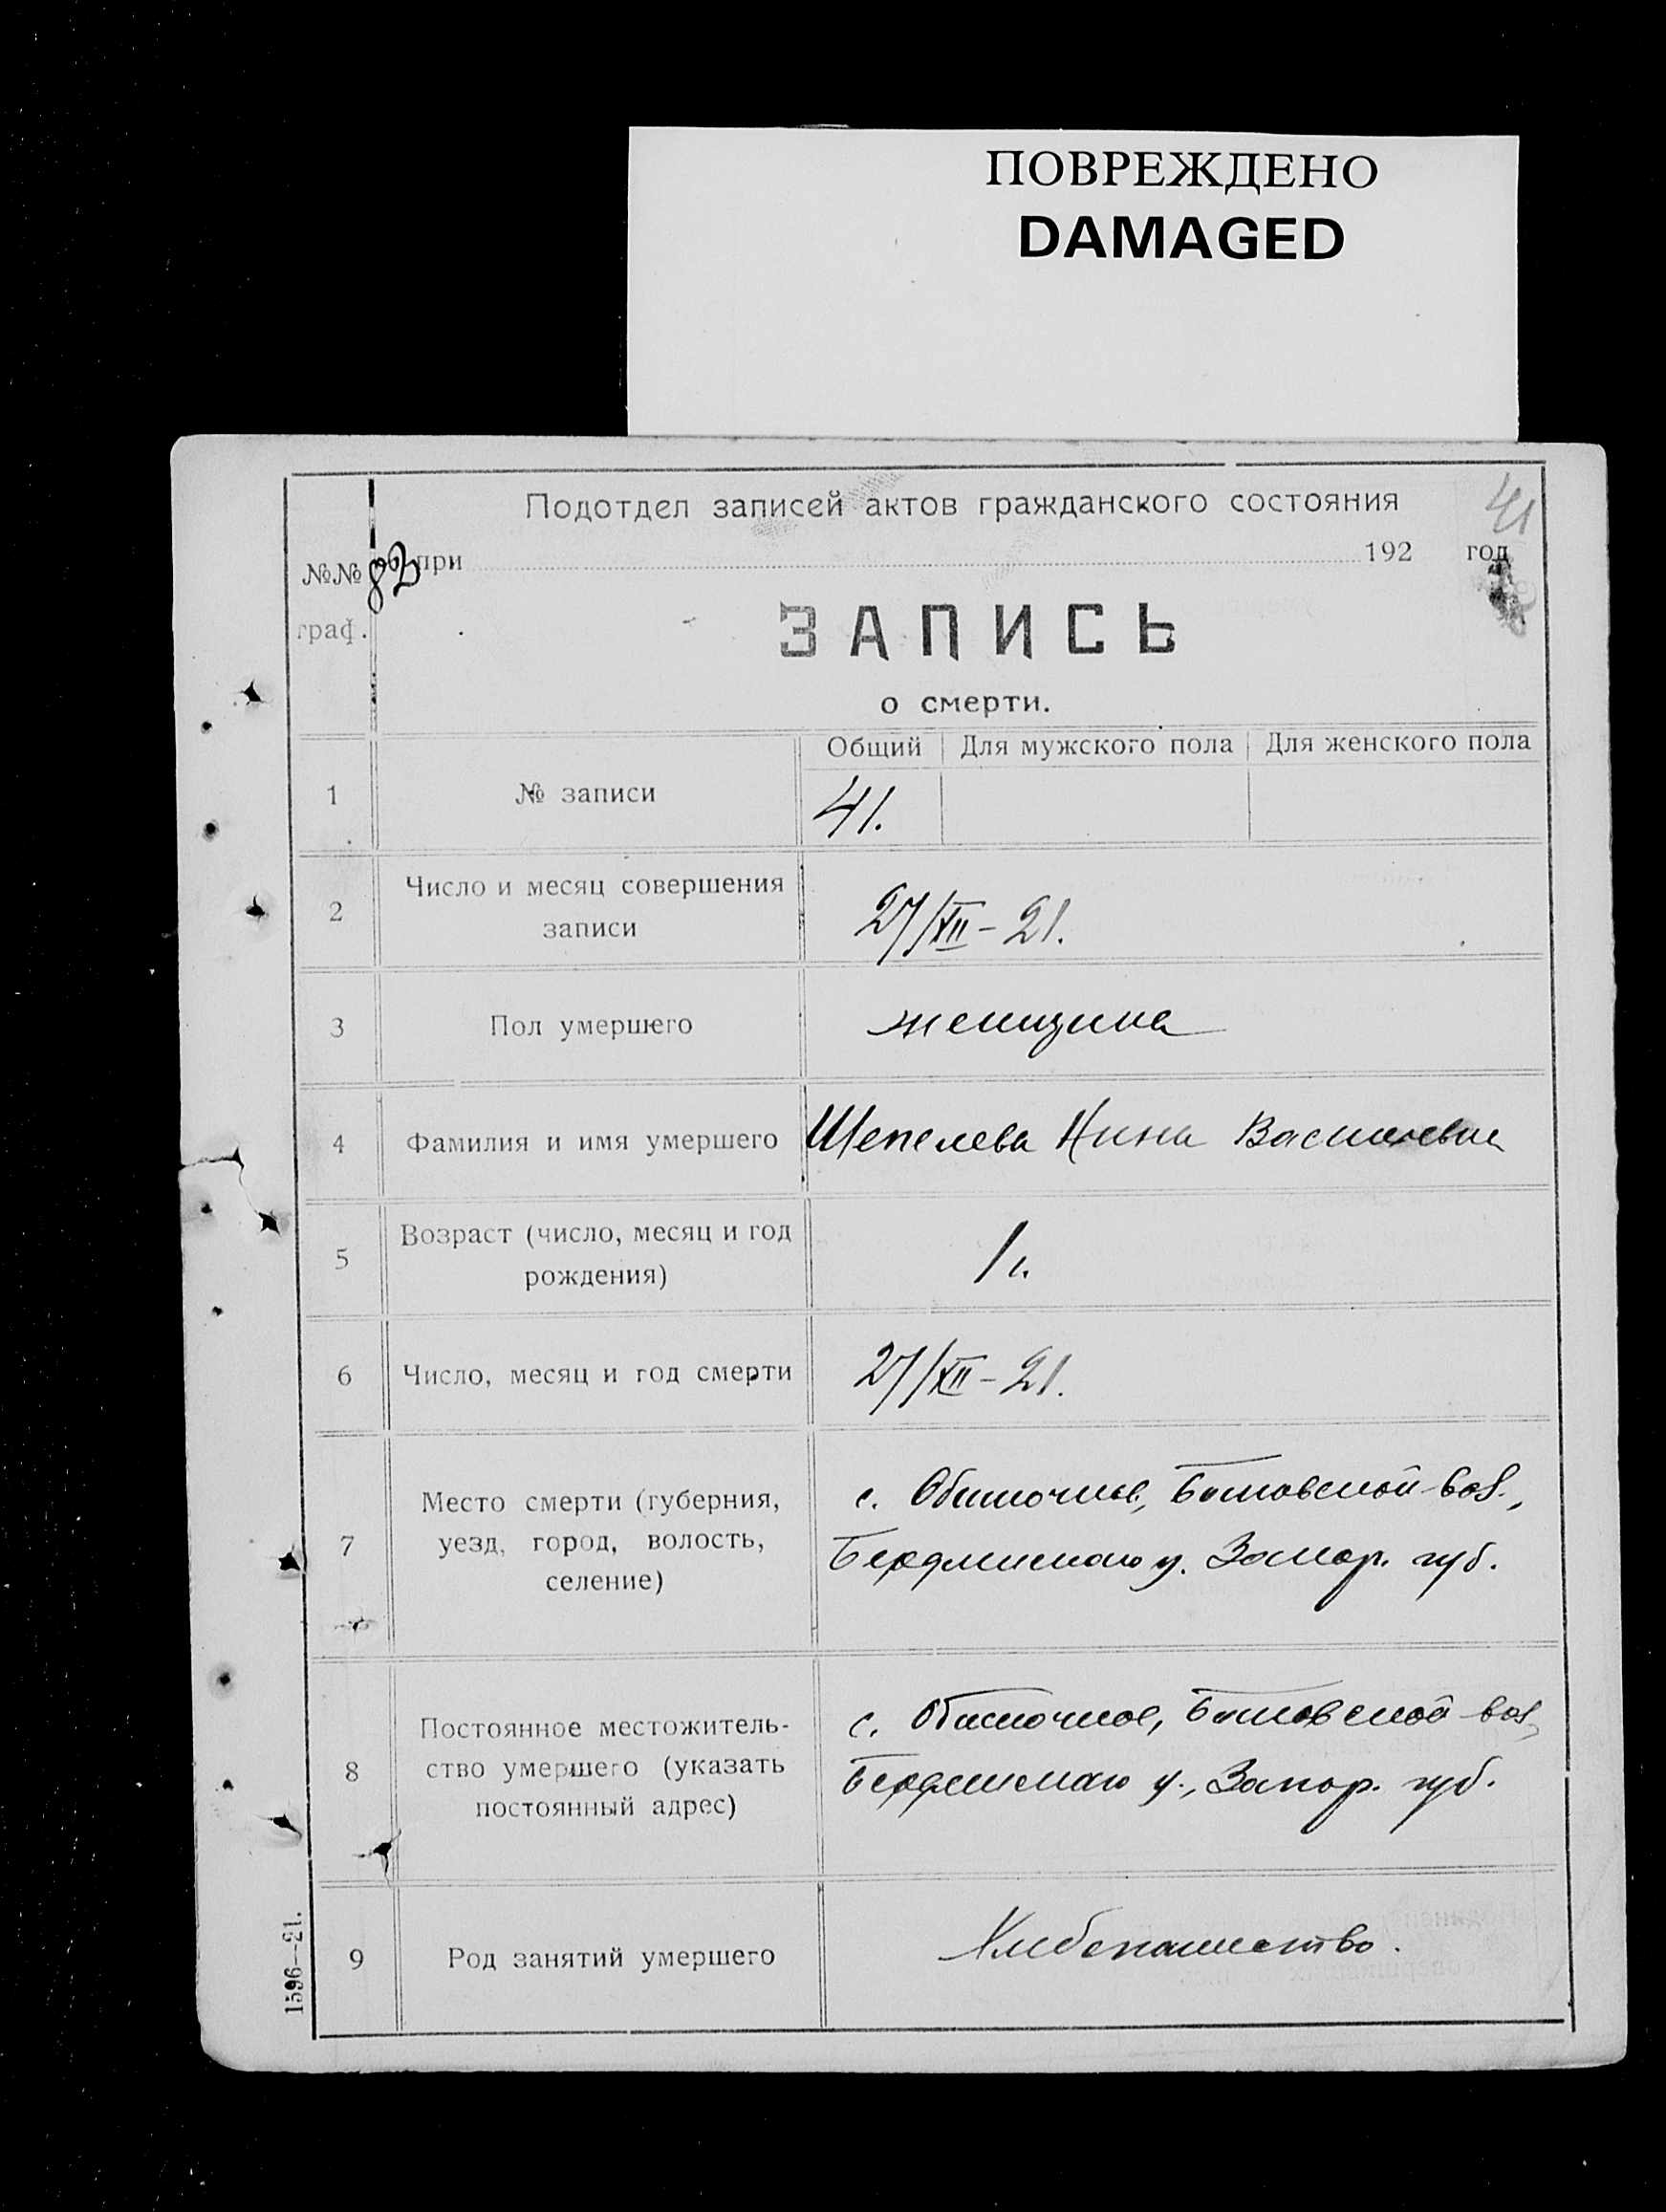 ПОВРЕЖДЕНО
DAMAGED
41
Подотдел записей актов гражданского состояния
при 192 год
№№
граф.
ЗАПИСЬ
о смерти.
Общий Для мужского пола Для женского пола
1 № записи 41.
2 Число и месяц совершения записи 27/XII – 21.
3 Пол умершего женщина
4 Фамилия и имя умершего Шепелева Нина Васильевна
5 Возраст (число, месяц и год рождения) 1 г.
6 Число, месяц и год смерти 27/XII – 21.
7 Место смерти (губерния, уезд, город, волость, селение)
с. Обиточное, вол.,
у. Запор. губ.
8 Постоянное местожитель-
ство умершего (указать
постоянный адрес)
с. Обиточное, вол,
у., Запор. губ.
9 Род занятий умершего Хлебопашество.
1596—21.